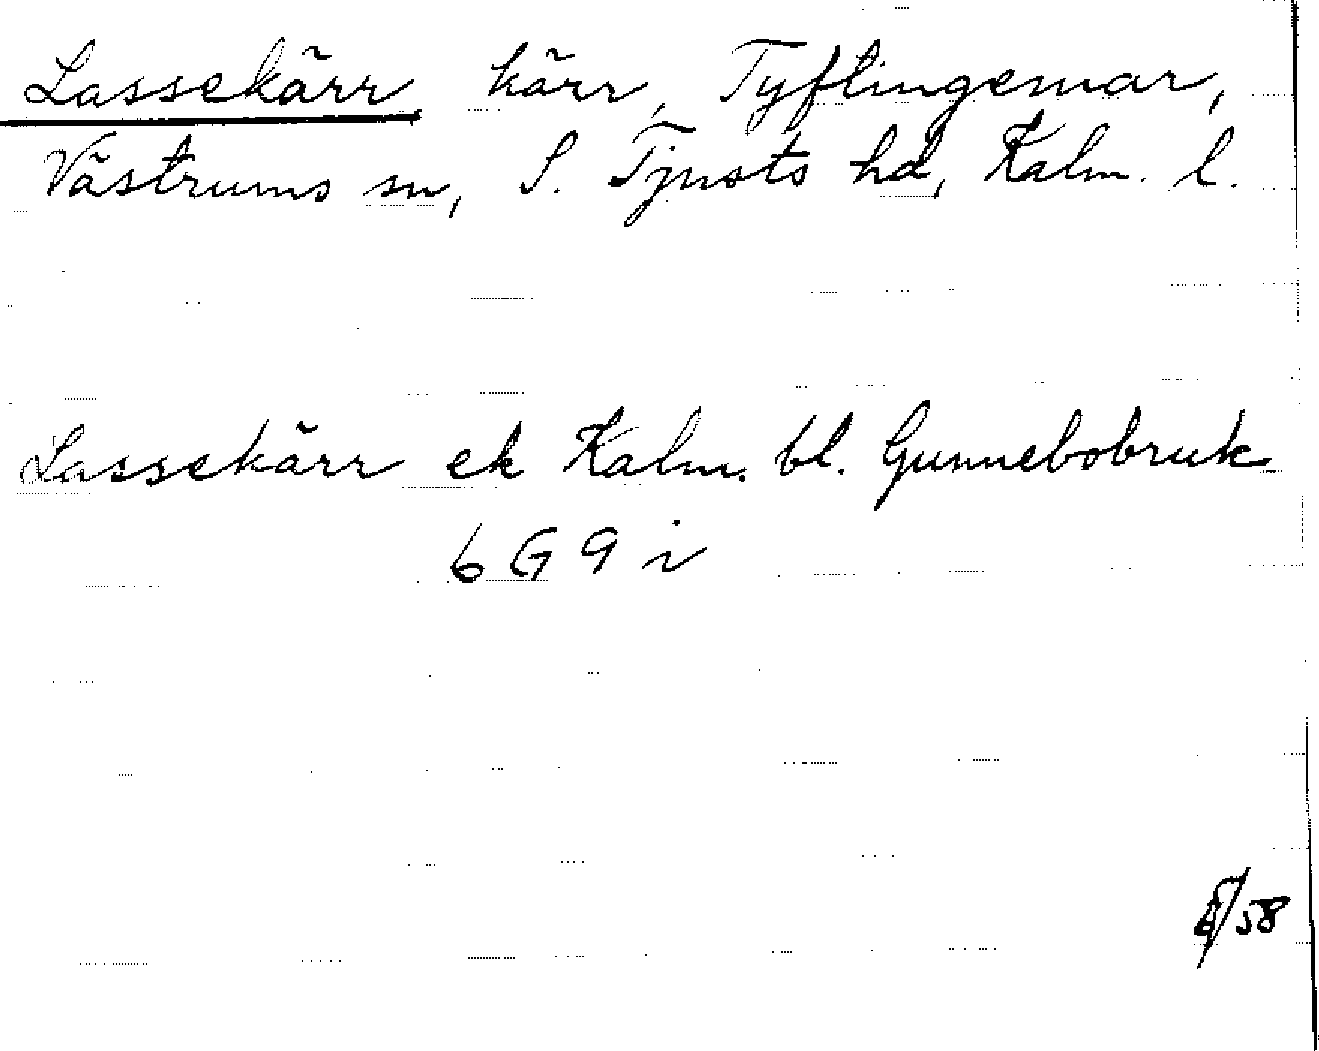 Lassekärr, kärr, Tyflingemar,
Västrums sn, S. Tjusts hd, Kalm. l.
Lassekärr ek Kalm. bl. Gunnebobruk
6 G 9 i
58